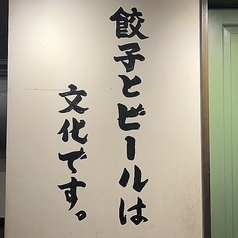 餃子とビールは
文化です。